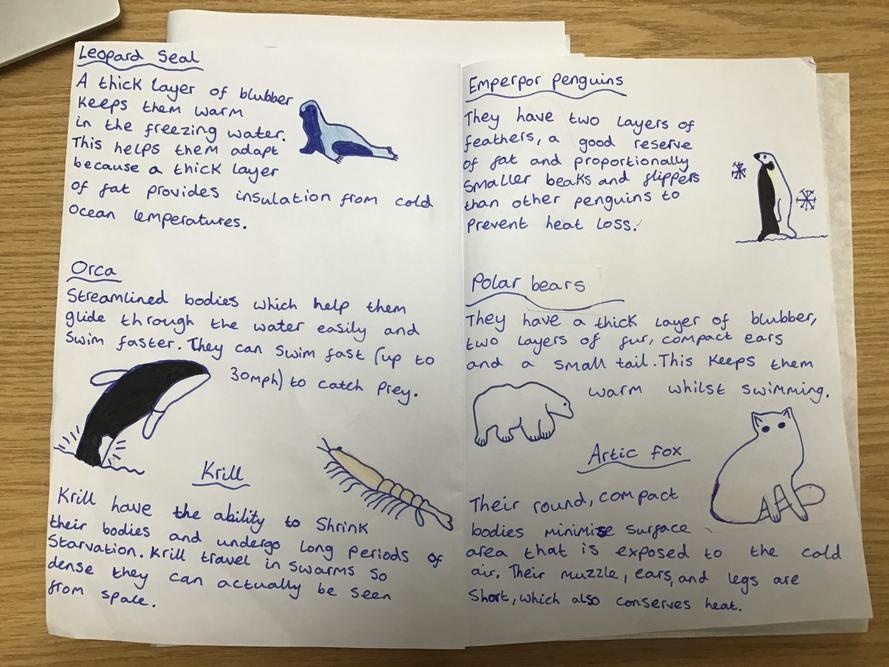 Leopard Seal
A thick layer of blubber
keeps them warm
in the freezing water.
This helps them adapt
because a thick layer
of fat provides insulation from cold
Ocean temperatures.
Orca
Streamlined bodies which help them
glide through the water easily and
swim faster. They can swim fast (up to
30mph) to catch prey.
Krill
Krill have the ability to Shrink
their bodies and undergo long periods of
Starvation. Krill travel in swarms so
dense they can actually be seen
from space.
Emperpor penguins
They have two layers of
feathers, a good reserve
of fat and proportionally
smaller beaks and flippers
than other penguins to
prevent heat loss.
Polar bears
They have a thick layer of blubber,
two layers of fur, compact ears
and a small tail. This keeps them
warm whilst swimming.
Artic fox
Their round, compact
bodies minimise surface
area that is exposed to the cold
air. Their muzzle, ears, and legs are
Short, which also conserves heat.